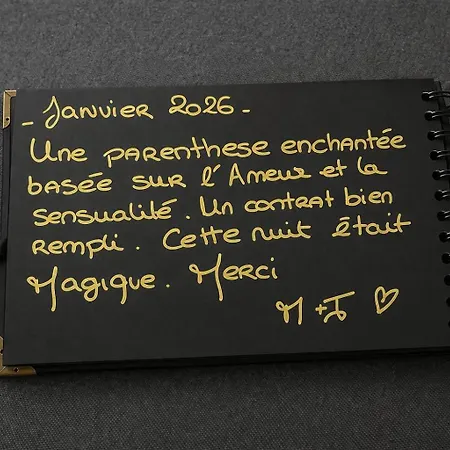 - Janvier 2026 -
Une parenthese enchantée
basée sur l'Amour et la
sensualité. Un contrat bien
rempli. Cette nuit était
Magique. Merci
M + J ♡